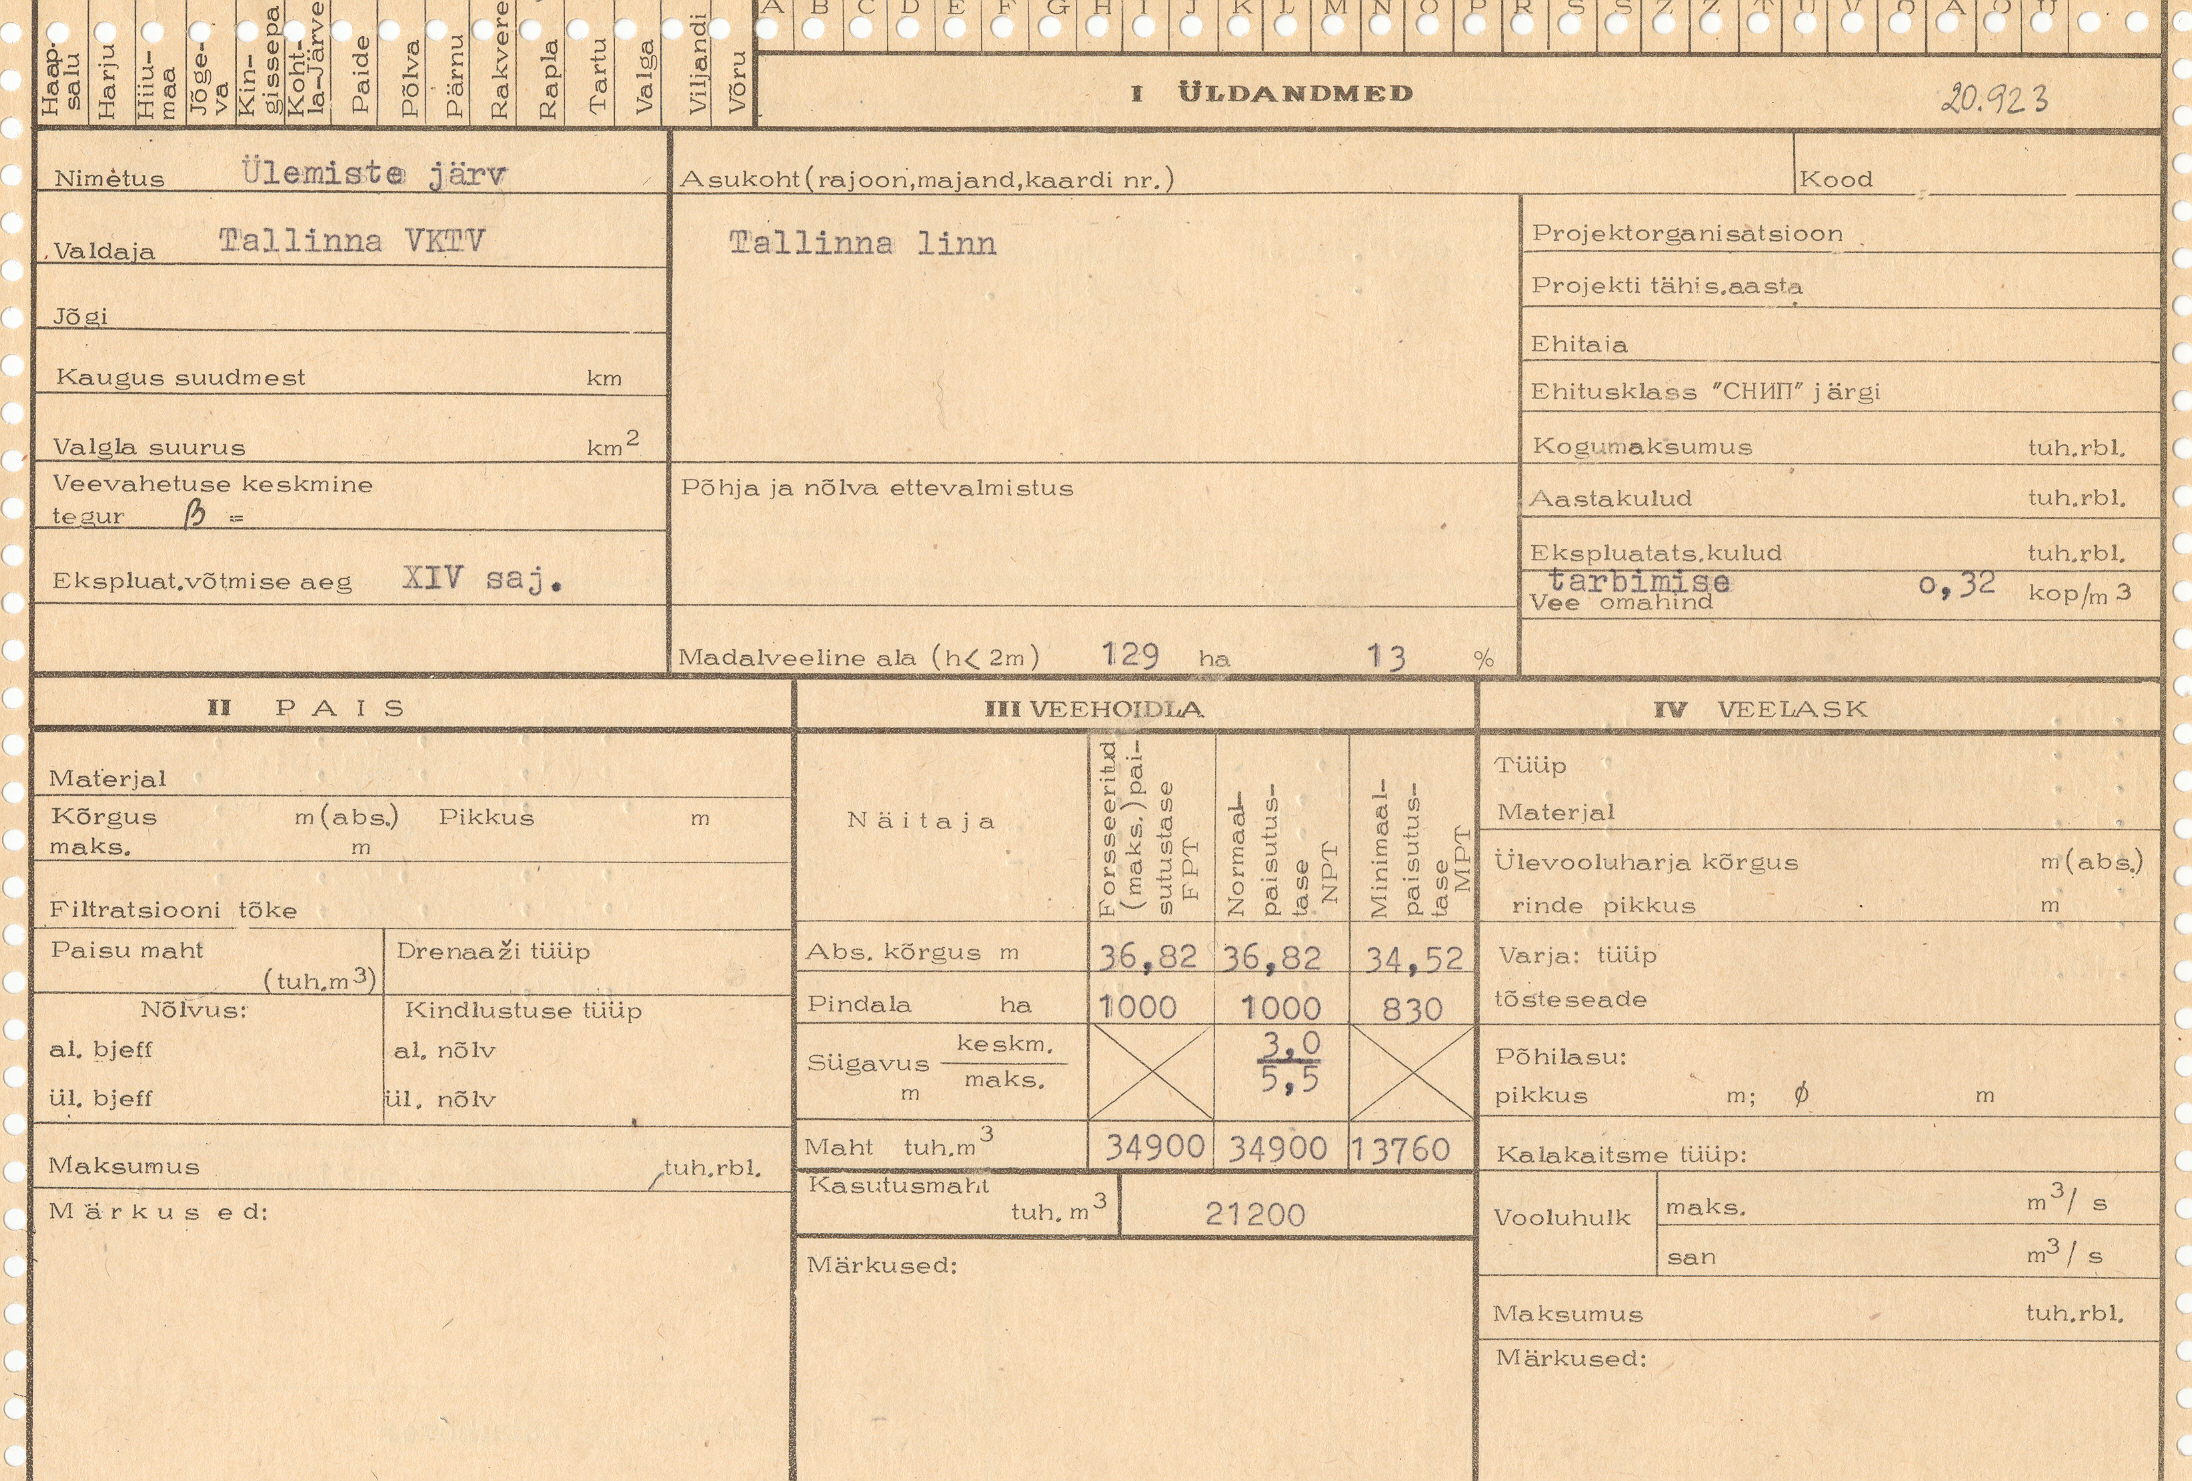 A B C D E F G H I J K L M N O P R S Š Z Ž T U V Õ Ä Ö Ü
Haap-
salu
Harju
Hiiu-
maa
Jõge-
va
Kin-
gissepa
Koht-
la-Järve
Paide
Põlva
Pärnu
Rakvere
Rapla
Tartu
Valga
Viljandi
Võru
I ÜLDANDMED
20.923
Nimetus Ülemiste järv
Asukoht (rajoon,majand,kaardi nr.)
Kood
Valdaja Tallinna VKTV
Tallinna linn
Projektorganisatsioon
Projekti tähis.aasta
Jõgi
Ehitaja
Kaugus suudmest km
Ehitusklass "СНИП" järgi
Valgla suurus km2
Kogumaksumus tuh.rbl.
Veevahetuse keskmine
tegur β =
Põhja ja nõlva ettevalmistus
Aastakulud tuh.rbl.
Ekspluatats.kulud tuh.rbl.
Ekspluat.võtmise aeg XIV saj.
tarbimise
Vee omahind 0,32 kop/m3
Madalveeline ala (h< 2m) 129 ha 13 %
II PAIS
Materjal
Kõrgus m(abs.) Pikkus m
maks. m
Filtratsiooni tõke
Paisu maht
(tuh.m3)
Drenaaži tüüp
Nõlvus: Kindlustuse tüüp
al. bjeff al. nõlv
ül. bjeff ül. nõlv
Maksumus tuh.rbl.
Märkused:
III VEEHOIDLA
Näitaja
Forsseeritud
(maks.) pai-
sutustase
FPT
Normaal-
paisutus-
tase
NPT
Minimaal-
paisutus-
tase
MPT
Abs. kõrgus m 36,82 36,82 34,52
Pindala ha 1000 1000 830
Sügavus keskm. 3,0
maks. 5,5
m
Maht tuh.m3 34900 34900 13760
Kasutusmaht
tuh. m3 21200
Märkused:
IV VEELASK
Tüüp
Materjal
Ülevooluharja kõrgus m(abs.)
rinde pikkus m
Varja: tüüp
tõsteseade
Põhilasu:
pikkus m; ϕ m
Kalakaitsme tüüp:
Vooluhulk maks. m3/ s
san m3/ s
Maksumus tuh.rbl.
Märkused: